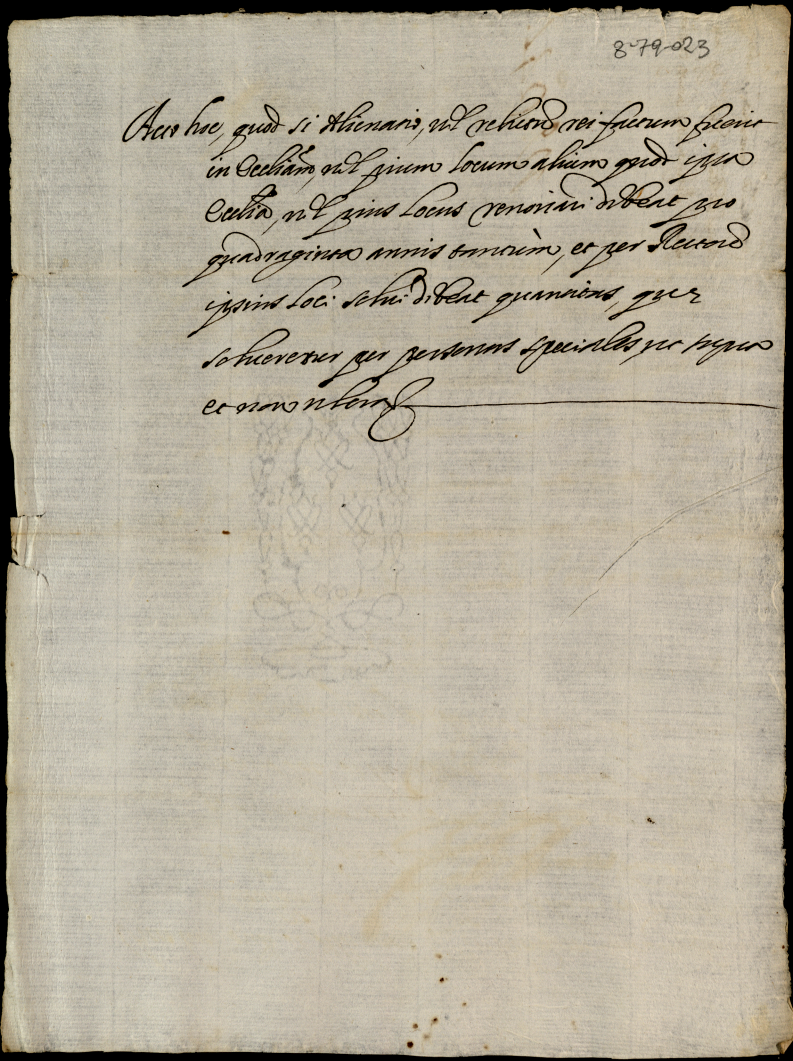 8-79-023
Acto hoc, quod si Alienatio, vel relictu rei factum fuerit
in Eccliam, vel pium locum alium quod ipsa
Ecclia, vel pius locus renovari debeat pro
quadraginta annis tantùm, et per Rectore
ipsius loci solui debeat quantitas, que
solueretur per personas speciales, ut supra
et non ultra